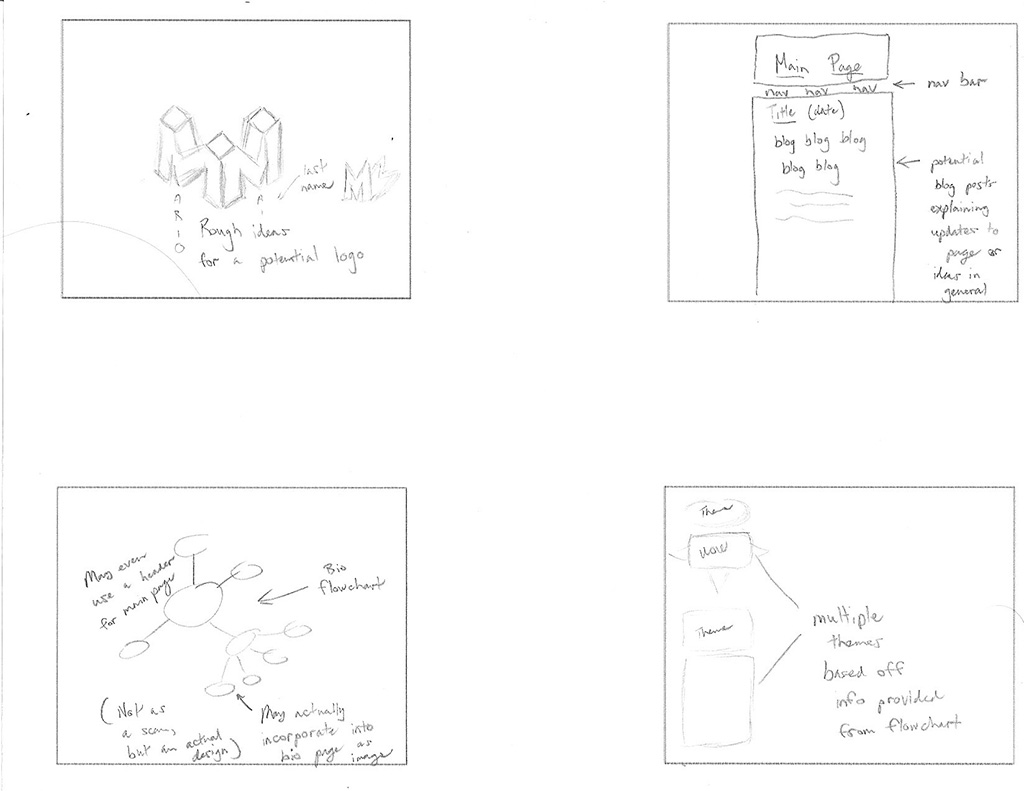 MM
A
R
I
O
A
last
name
M
Rough ideas
for a potential logo
Main Page
nav nav nav
nav bar
Title (date)
blog blog blog
blog blog
potential
blog posts
explaining
updates to
page or
ideas in
general
May even
use a header
for main page
Bio
flowchart
(Not as
a scan,
but an actual
design)
May actually
incorporate into
bio page as
image
Theme
Theme
multiple
themes
based off
info provided
from flowchart